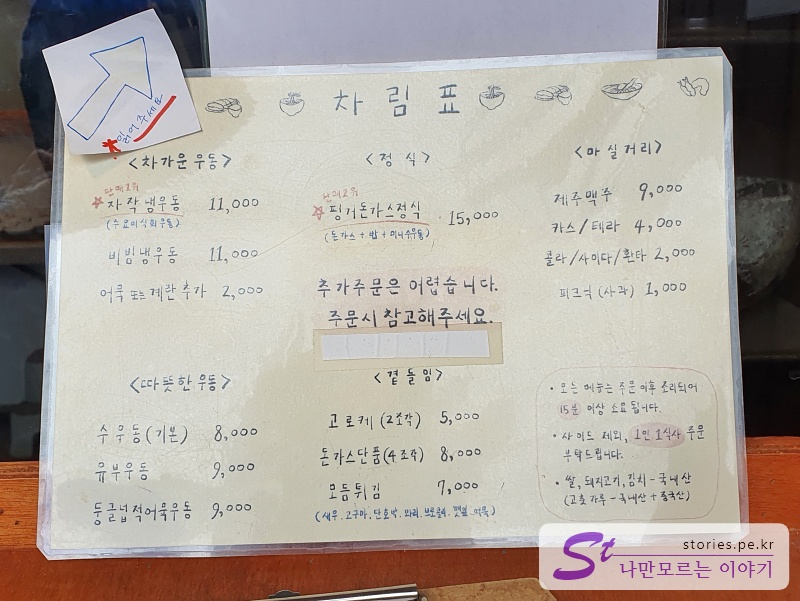 읽어주세요
차림표
<차가운 우동>
단매고위
자작냉우동 11,000
(수요미식회우동)
비빔냉우동 11,000
어묵 또는 계란 추가 2,000
<따뜻한 우동>
수우동(기본) 8,000
유부우동 9,000
둥글넙적어묵우동 9,000
<정식>
핑거돈가스정식 15,000
(돈가스 + 밥 + 미니수우동)
추가주문은 어렵습니다.
주문시 참고해주세요.
<곁들임>
고로케 (2조각) 5,000
돈가스단품(4조각) 8,000
모듬튀김 7,000
(새우, 고구마, 단호박, 꽈리, 브로콜리, 깻잎, 어묵)
<마실거리>
제주맥주 9,000
카스/테라 4,000
콜라/사이다/환타 2,000
피크닉 (사과) 1,000
• 모든 메뉴는 주문 이후 조리되어
15분 이상 소요 됩니다.
• 사이드 제외, 1인 1식사 주문
부탁드립니다.
• 쌀, 돼지고기, 김치 - 국내산
(고춧가루 - 국내산 + 중국산)
St
stories.pe.kr
나만모르는 이야기